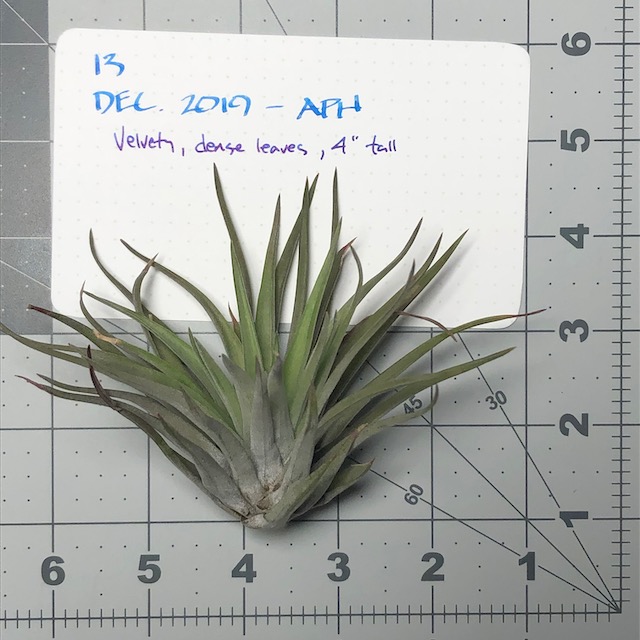 13
DEC. 2019 - APH
Velvety, dense leaves, 4" tall
6
5
4
3
2
1
45
30
60
6 5 4 3 2 1